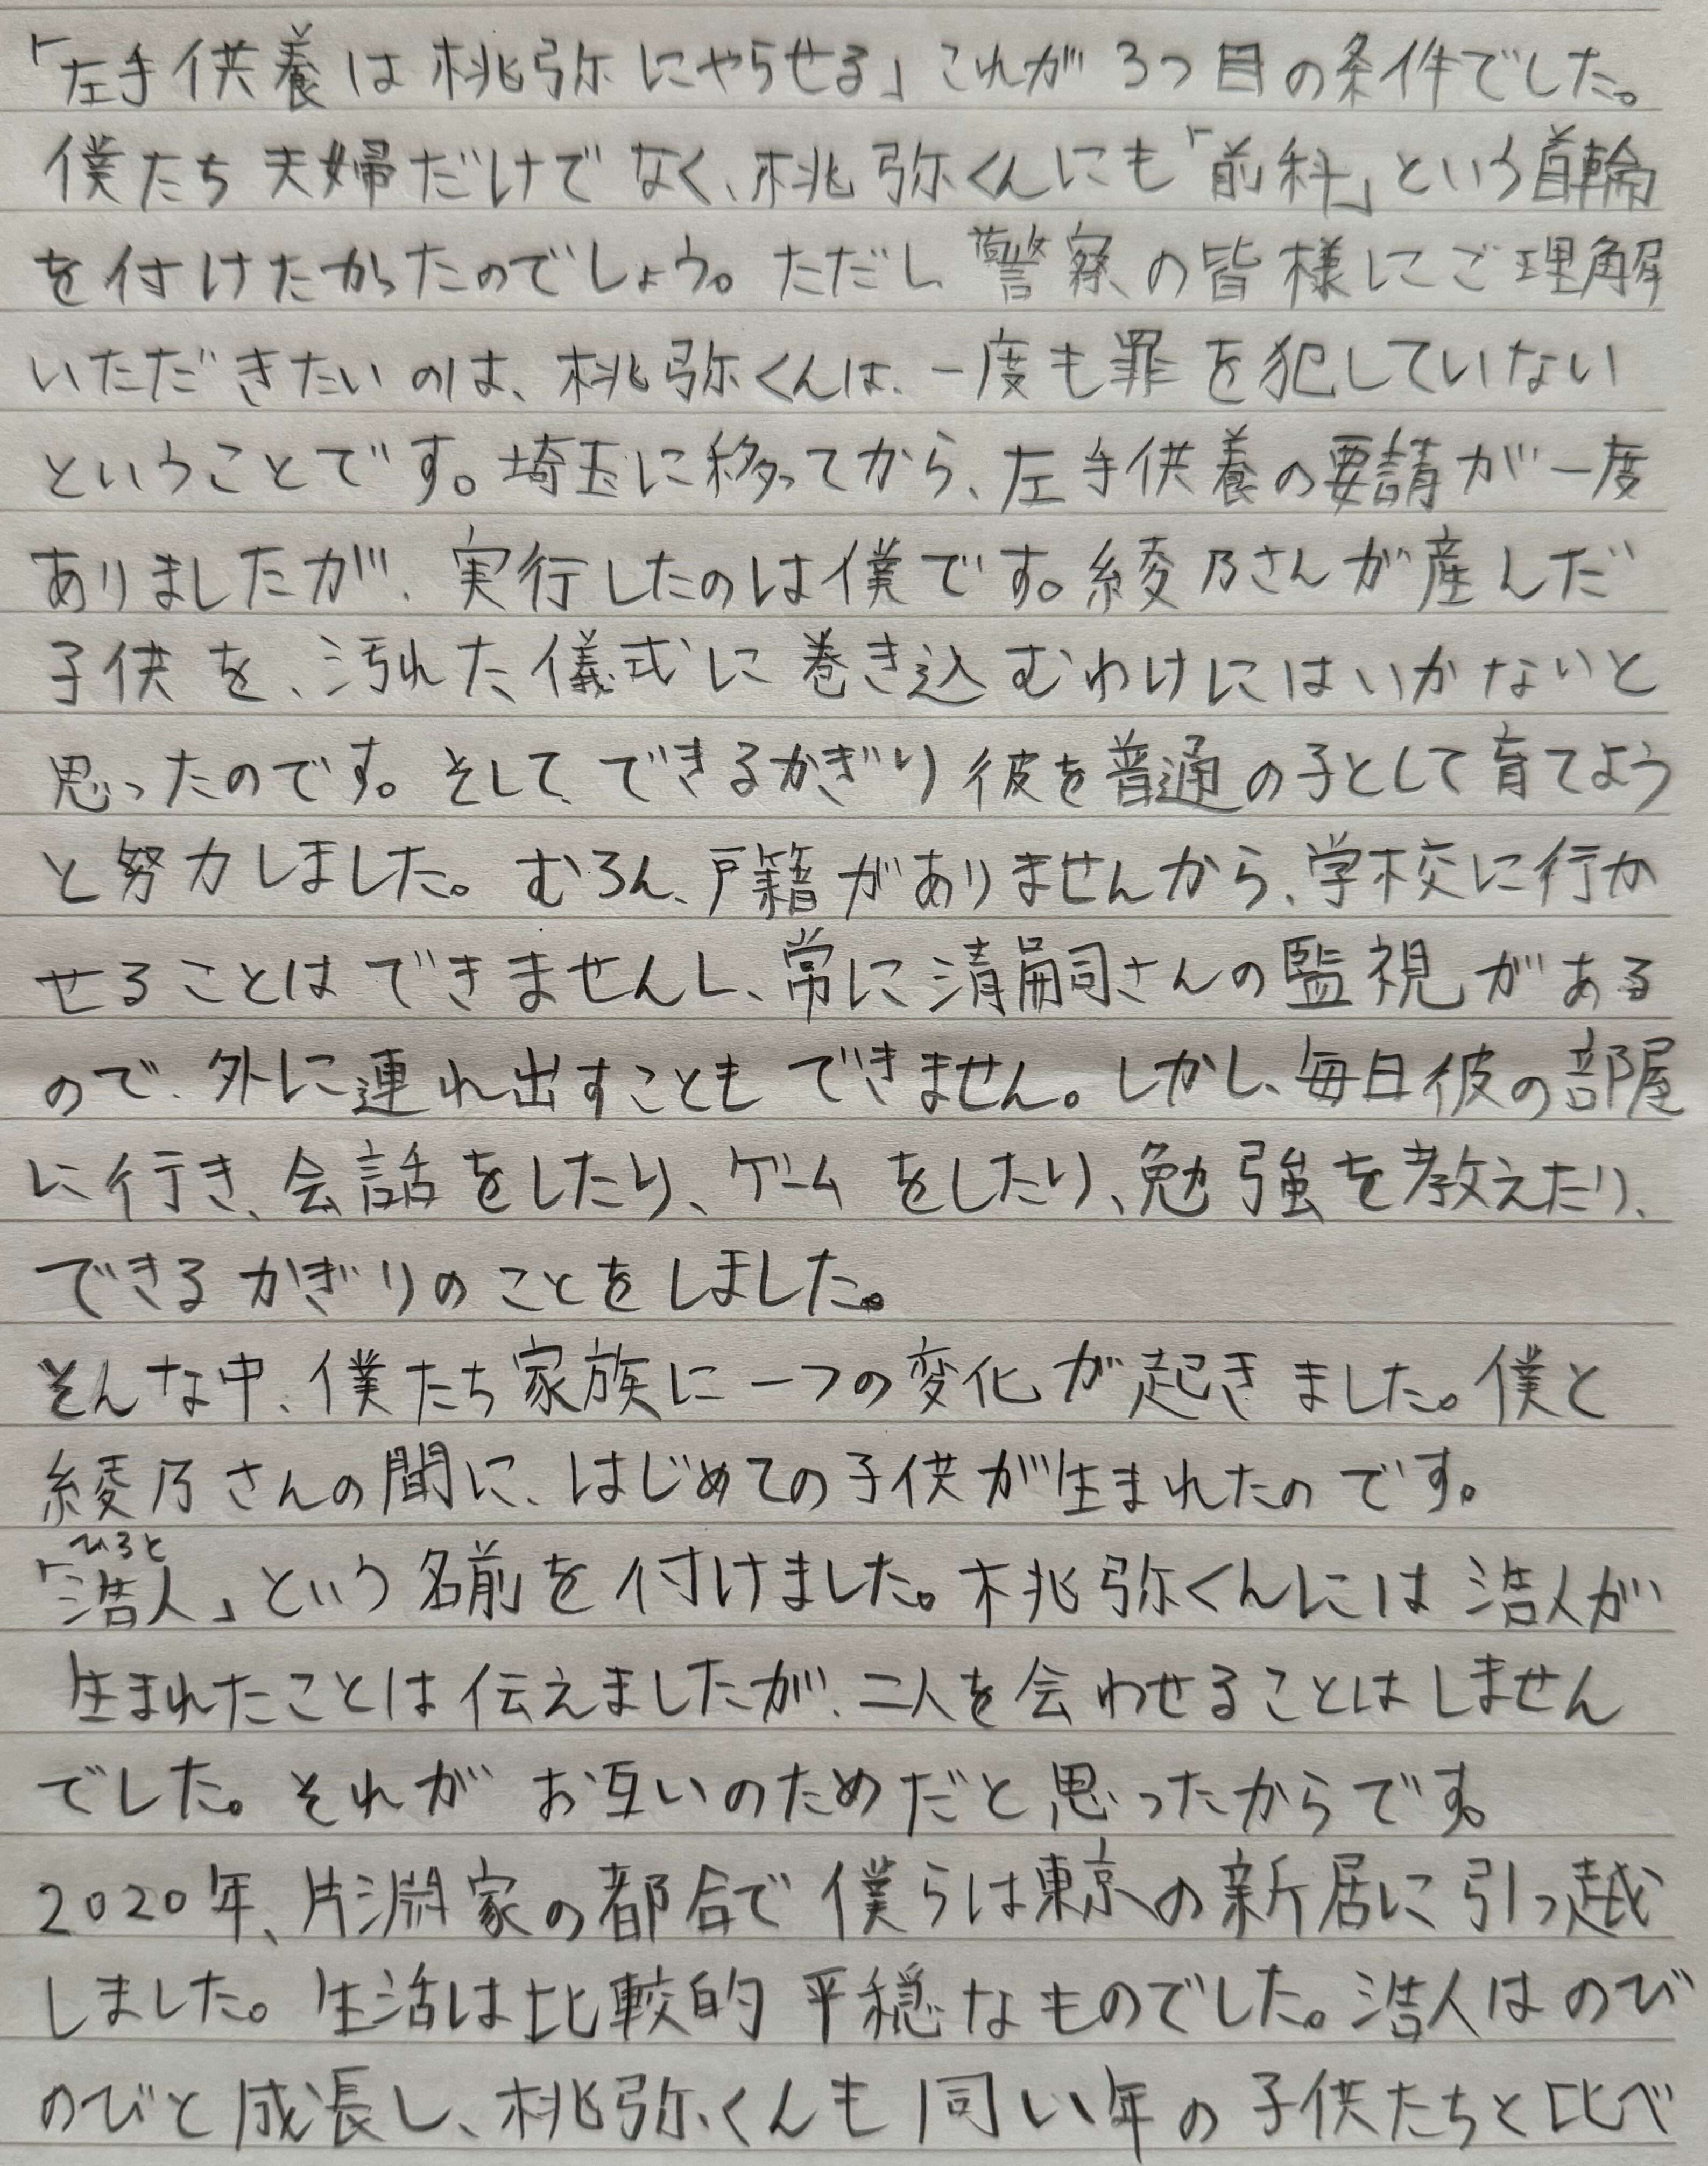 「左手供養は桃弥にやらせる」これが3つ目の条件でした。
僕たち夫婦だけでなく、桃弥くんにも「前科」という首輪
を付けたかったのでしょう。ただし、警察の皆様にご理解
いただきたいのは、桃弥くんは、一度も罪を犯していない
ということです。埼玉に移ってから、左手供養の要請が一度
ありましたが、実行したのは僕です。綾乃さんが産んだ
子供を、汚れた儀式に巻き込むわけにはいかないと
思ったのです。そして、できるかぎり彼を普通の子として育てよう
と努力しました。むろん、戸籍がありませんから、学校に行か
せることはできませんし、常に清嗣さんの監視がある
ので、外に連れ出すこともできません。しかし、毎日彼の部屋
に行き、会話をしたり、ゲームをしたり、勉強を教えたり、
できるかぎりのことをしました。
そんな中、僕たち家族に一つの変化が起きました。僕と
綾乃さんの間に、はじめての子供が生まれたのです。
ひろと
「浩人」という名前を付けました。桃弥くんには浩人が
生まれたことは伝えましたが、二人を会わせることはしません
でした。それがお互いのためだと思ったからです。
2020年、片淵家の都合で僕らは東京の新居に引っ越
しました。生活は比較的平穏なものでした。浩人はのび
のびと成長し、桃弥くんも同い年の子供たちと比べ